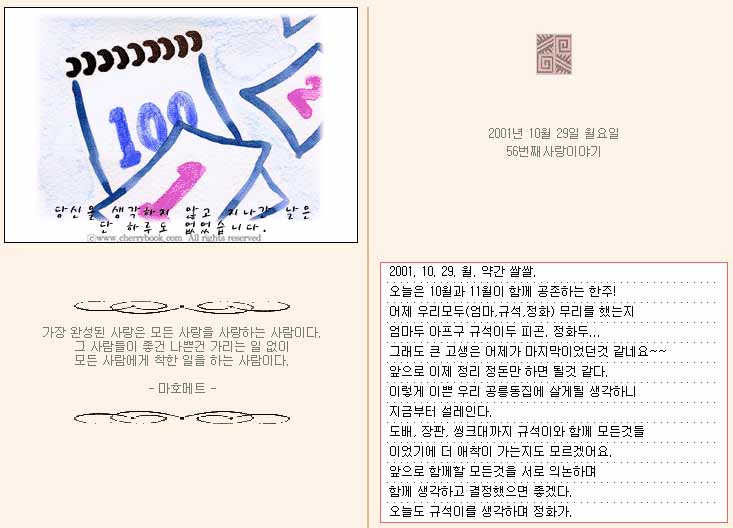 100
1
2
당신을 생각하지 않고 지나간 날은
단 하루도 없었습니다.
ⓒwww.cherrybook.com All rights reserved
가장 완성된 사랑은 모든 사람을 사랑하는 사람이다.
그 사람들이 좋건 나쁜건 가리는 일 없이
모든 사람에게 착한 일을 하는 사람이다.
- 마호메트 -
2001년 10월 29일 월요일
56번째사랑이야기
2001. 10. 29. 월. 약간 쌀쌀.
오늘은 10월과 11월이 함께 공존하는 한주!
어제 우리모두(엄마,규석,정화) 무리를 했는지
엄마두 아프구 규석이두 피곤. 정화두...
그래도 큰 고생은 어제가 마지막이었던것 같네요~~
앞으로 이제 정리 정돈만 하면 될것 같다.
이렇게 이쁜 우리 공릉동집에 살게될 생각하니
지금부터 설레인다.
도배. 장판. 씽크대까지 규석이와 함께 모든것들
이었기에 더 애착이 가는지도 모르겠어요.
앞으로 함께할 모든것을 서로 의논하며
함께 생각하고 결정했으면 좋겠다.
오늘도 규석이를 생각하며 정화가.